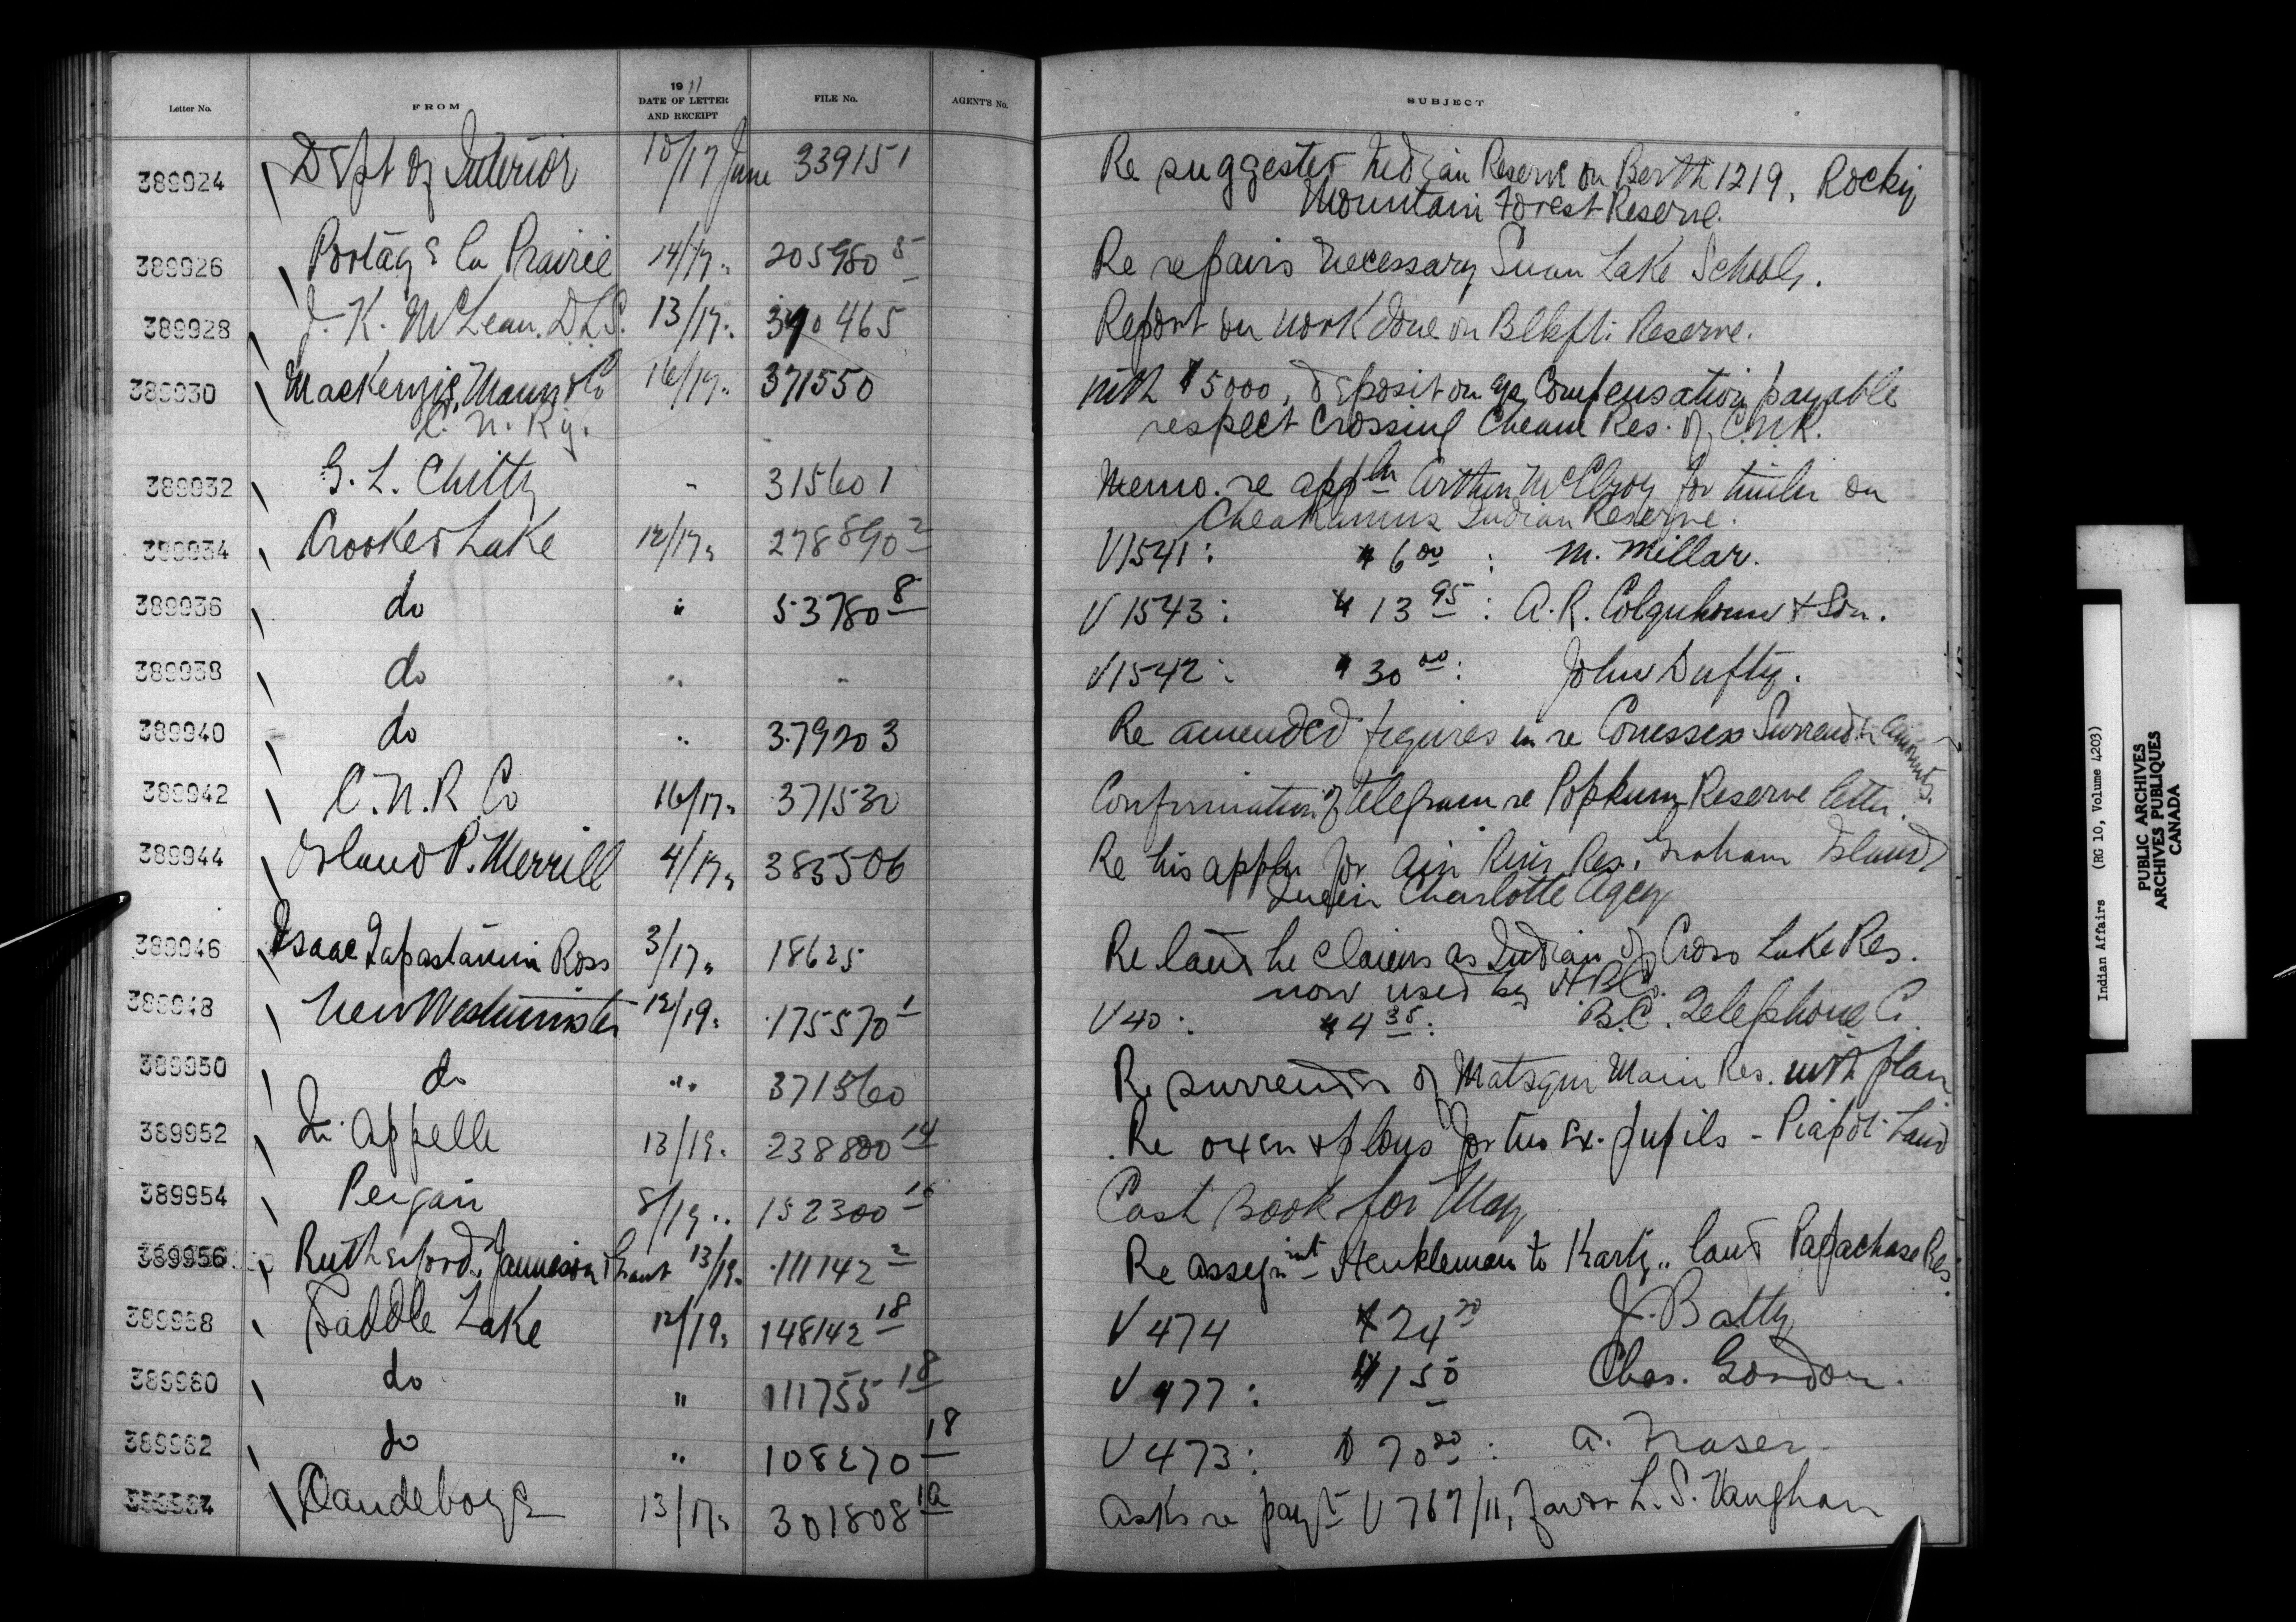 Letter No. FROM 1911 DATE OF LETTER AND RECEIPT FILE No. AGENT'S No. SUBJECT
389924 Dept of Interior 10/17 June 339151 Re suggested Indian Reserve on Berth 1219, Rocky
Mountain Forest Reserve.
389926 Portage la Prairie 14/17" 205980 8 Re repairs necessary Swan Lake School.
389928 J. K. McLean. D.L.S. 13/17" 340465 Report on work done on Blkft. Reserve.
389930 Mackenzie, Mann & Co 16/17" 371550 with $5000, deposit on a/c Compensation payable
C. N. Ry. respect Crossing Cheam Res. of C.N.R.
389932 G. L. Chitty " 315601 Memo. re appln Arthur McElroy for timber on
Cheakamus Indian Reserve.
389934 Crooked Lake 12/17" 278890 2 V1541: $6 00 : M. Millar.
389936 do " 53780 8 V 1543: $13 95 : A. R. Colquhoun & Son.
389938 do " " V1542: $30 00: John Dufty.
389940 do " 379203 Re amended figures in re Cowessess Surrender accounts.
389942 C. N. R Co 16/17" 371530 Confirmation of telegram re Popkum Reserve letter.
389944 Orland P. Merrill 4/17" 383506 Re his appln for Ain River Res. Graham Island
Queen Charlotte Agcy
389946 Isaac Ross 3/17" 18625 Re land he claims as Indian of Cross Lake Res.
now used by H.B.Co.
389948 New Westminster 12/19" 175570 1 V 40: $4 35: B.C. Telephone C.
389950 do " 371560 Re surrender of Matsqui Main Res. with plan
389952 Qu'Appelle 13/19" 238800 14 Re oxen & plows for two Ex-pupils - Piapot Land
389954 Peigan 8/19" 152300 16 Cash Book for May
389956 Rutherford, Jamieson & Grant 13/19" 111142 2 Re assignmt Henkleman to Kartz" land Papachase Res.
389958 Saddle Lake 12/19" 148142 18 V 474 $24 20 J. Batty
389960 do " 111755 18 V 477: $1 50 Chas. Gordon.
389962 do " 108270 18 V 473: $70 20: A. Fraser.
389964 Clandeboye 13/17" 301808 10 Asks re payt V 767/11, favor L. S. Vaughan
Indian Affairs (RG 10, Volume 4203)
PUBLIC ARCHIVES
ARCHIVES PUBLIQUES
CANADA